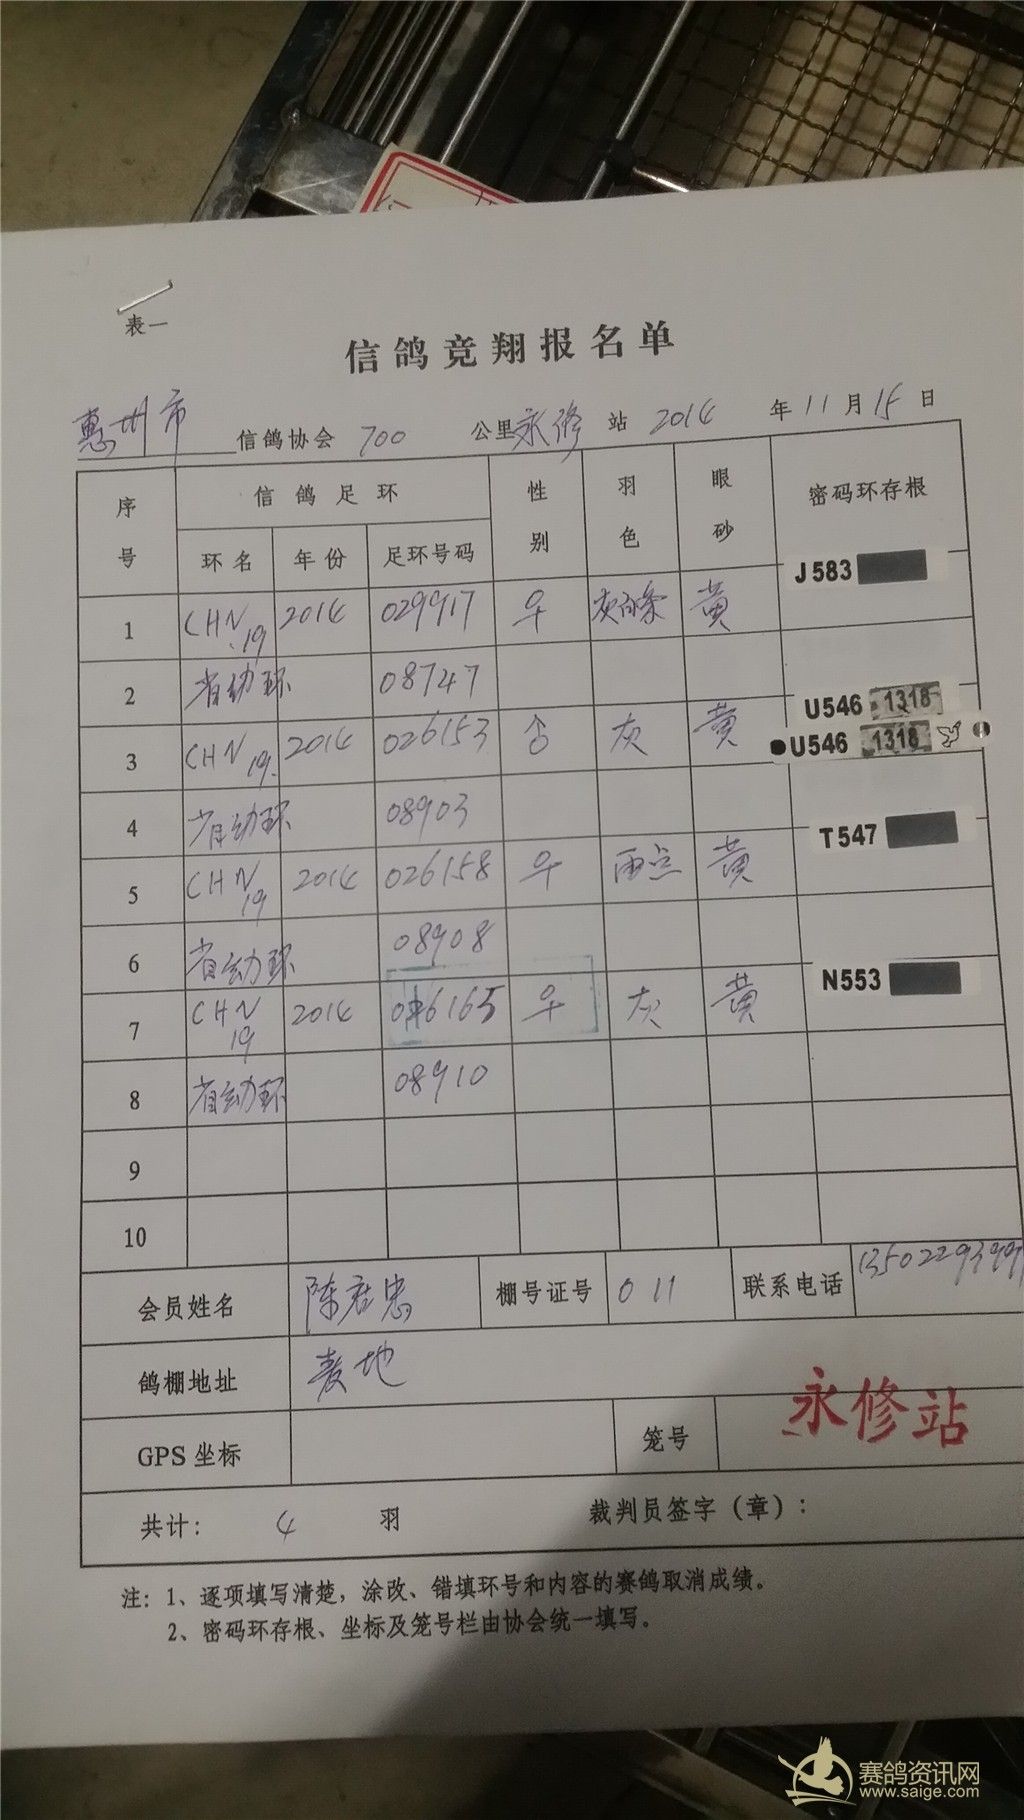 表一
信鸽竞翔报名单
惠州市 信鸽协会 700 公里 永修 站 2014 年 11 月 15 日
序号 信鸽足环 性别 羽色 眼砂 密码环存根
环名 年份 足环号码
J583
1 CHN 19 2014 029917 ♀ 灰白条 黄
2 省幼环 08747
U546 1318
3 CHN 19. 2014 026153 ♂ 灰 黄 U546 1318
4 省幼环 08903
T547
5 CHN 19 2014 026158 ♀ 雨点 黄
6 省幼环 08908
N553
7 CHN 19 2014 026165 ♀ 灰 黄
8 省幼环 08910
9
10
会员姓名 陈君忠 棚号证号 011 联系电话
鸽棚地址 麦地
GPS 坐标 笼号 永修站
共计: 4 羽 裁判员签字（章）:
注: 1、逐项填写清楚，涂改、错填环号和内容的赛鸽取消成绩。
2、密码环存根、坐标及笼号栏由协会统一填写。
赛鸽资讯网
www.saige.com